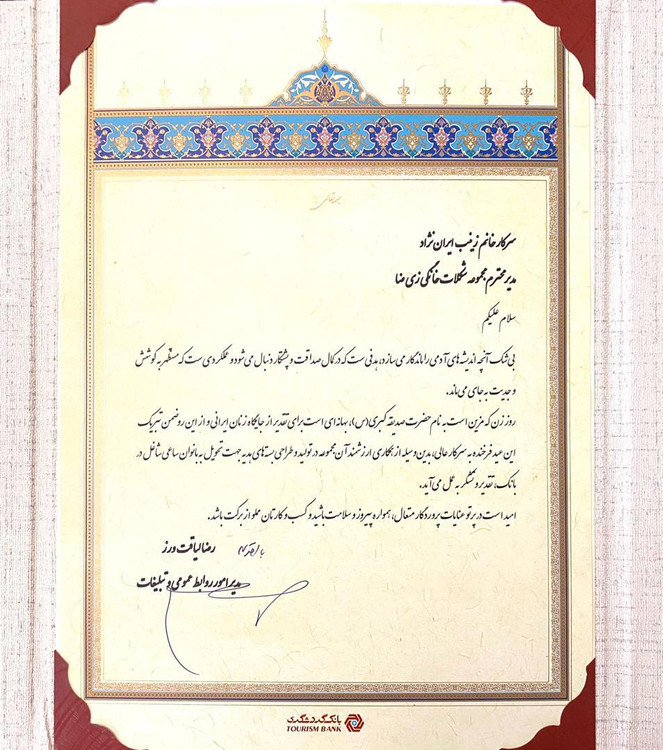 بسمه تعالی
سرکار خانم زینب ایران نژاد
مدیر محترم مجموعه شکلات خانگی زی ضا
سلام علیکم
بی شک آنچه اندیشه های آدمی را ماندگار می سازد، هدفی ست که در کمال صداقت و پشتکار دنبال می شود و عملکردی ست که مسطّر به کوشش
و جدیت به جای می ماند.
روز زن که مزین است به نام حضرت صدیقه کبری (س)، بهانه ای است برای تقدیر از جایگاه زنان ایرانی و از این رو ضمن تبریک
این عید فرخنده به سرکار عالی، بدین وسیله از همکاری ارزشمند آن مجموعه در تولید و طراحی بسته های هدیه جهت تحویل به بانوان ساعی شاغل در
بانک، تقدیر و تشکر به عمل می آید.
امید است در پرتو عنایات پروردگار متعال، همواره پیروز و سلامت باشید و کسب و کارتان مملو از برکت باشد.
رضا لیاقت ورز
مدیر امور روابط عمومی و تبلیغات
بانک گردشگری
TOURISM BANK